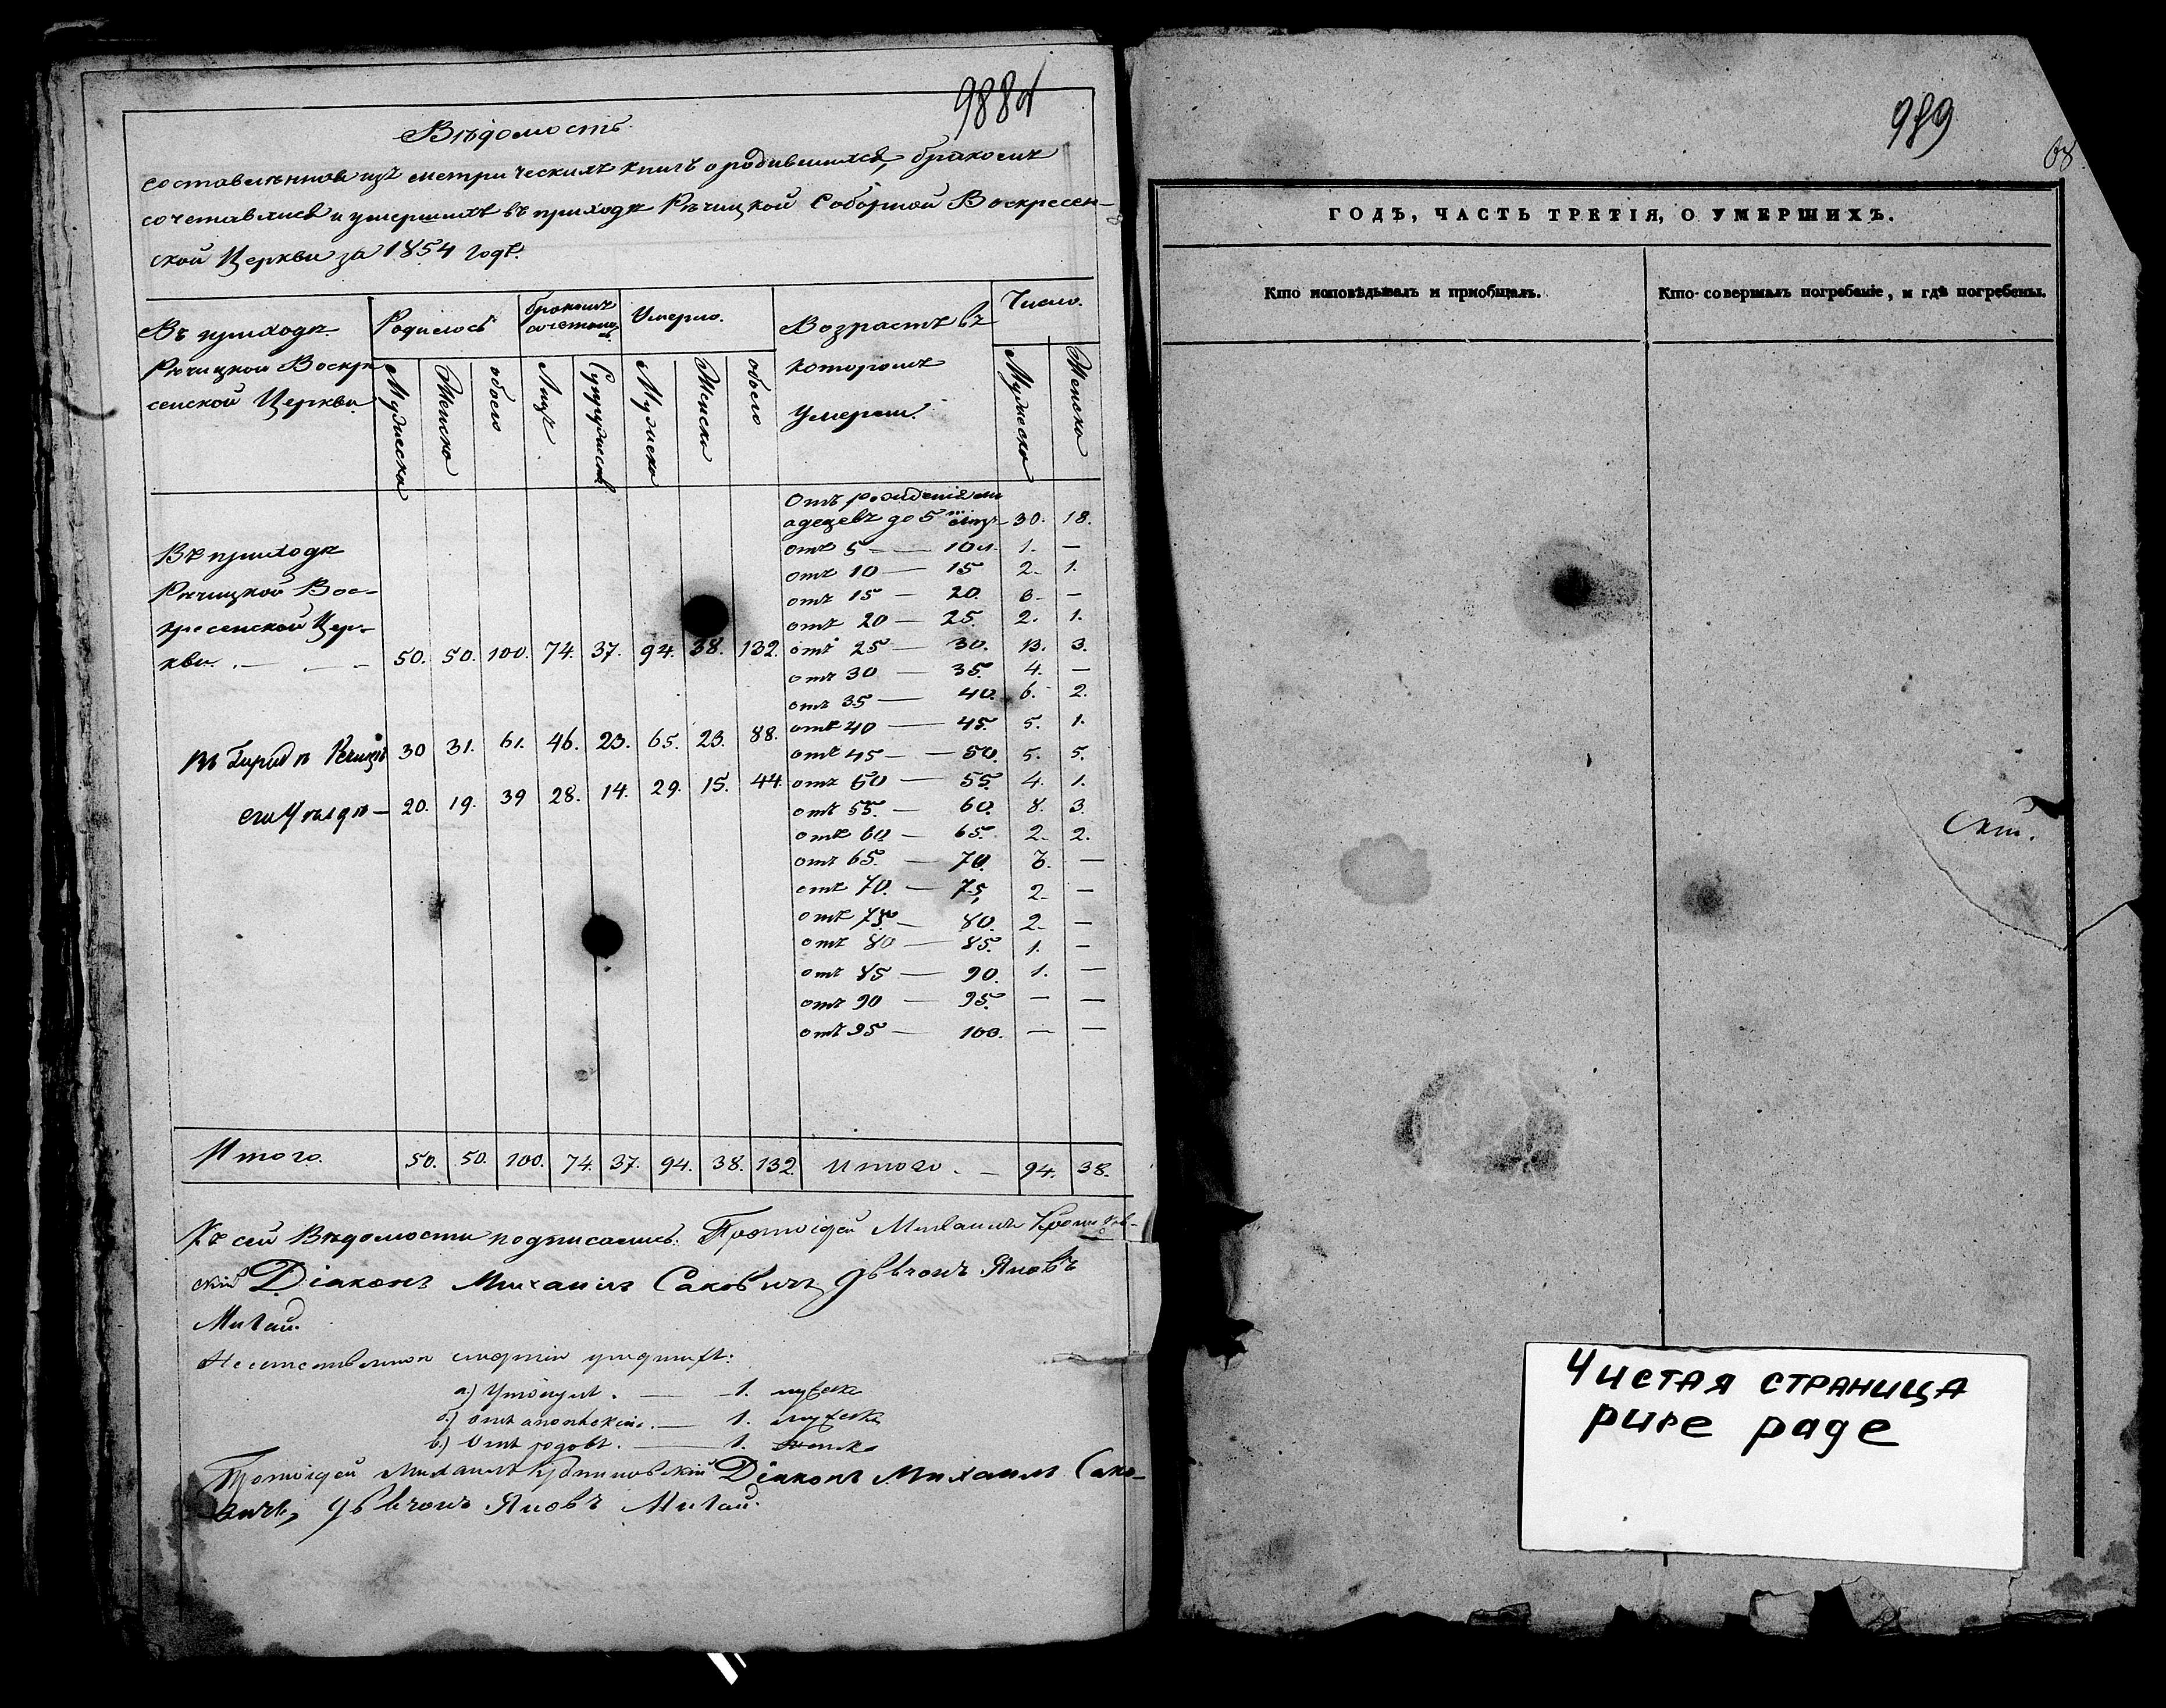 988
Вѣдомость
составленная изъ метрическихъ книгъ о родившихся, бракомъ
сочетавшихся и умершихъ въ приходѣ Рѣчицкой Соборной Воскресен-
ской Церкви за 1854 годъ.
Въ приходѣ Рѣчицкой Воскре
сенской Церкви
Родилось
бракомъ
Умерло.
Возрастъ въ
которомъ
Умерли.
Число.
Мужеска
Женска
обоего
Лицъ
Супружествъ
Мужеска
Женска
обоего
Мужеска
Женска
Отъ рожденія мл
аденцевъ до 5 лѣтъ 30. 18.
отъ 5 — 10 л. 1. —
отъ 10 — 15 2. 1.
отъ 15 — 20. —
отъ 20 — 25. 2. 1.
Въ приходѣ
Рѣчицкой Вос-
кресенской Цер-
кви. — 50. 50. 100. 74. 37. 94. 38. 132.
отъ 25 — 30. 13. 3.
отъ 30 — 35. 4. —
отъ 35 — 40. 6. 2.
отъ 40 — 45. 5. 1.
Въ Городѣ Рѣчицѣ 30 31. 61. 46. 23. 65. 23. 88.
отъ 45 — 50. 5. 5.
отъ 50 — 55. 4. 1.
его Уѣздѣ — 20. 19. 39 28. 14. 29. 15. 44.
отъ 55. — 60. 8. 3.
отъ 60 — 65. 2. 2.
отъ 65. — 70. —
отъ 70. — 75. 2. —
отъ 75. — 80. 2. —
отъ 80 — 85. 1. —
отъ 85 — 90. 1. —
отъ 90 — 95. — —
отъ 95 — 100. — —
Итого. 50. 50. 100. 74. 37. 94. 38. 132. Итого. — 94. 38.
Къ сей Вѣдомости подписались: Протоіерей Михаилъ
скій Діаконъ Михаилъ Саковичъ, Яковъ
Мигай.
смертію умершихъ:
а.) Утонулъ. — 1. мужеска
б.) отъ апоплексіи. — 1. мужеска
в.) Отъ родовъ. — 1. женска
Протоіерей Михаилъ Діаконъ Михаилъ Сако-
вичъ, Яковъ Мигай.
989
ГОДЪ, ЧАСТЬ ТРЕТІЯ, О УМЕРШИХЪ.
Кто исповѣдывалъ и пріобщалъ.
Кто совершалъ погребеніе, и гдѣ погребены.
Чистая страница
pure page